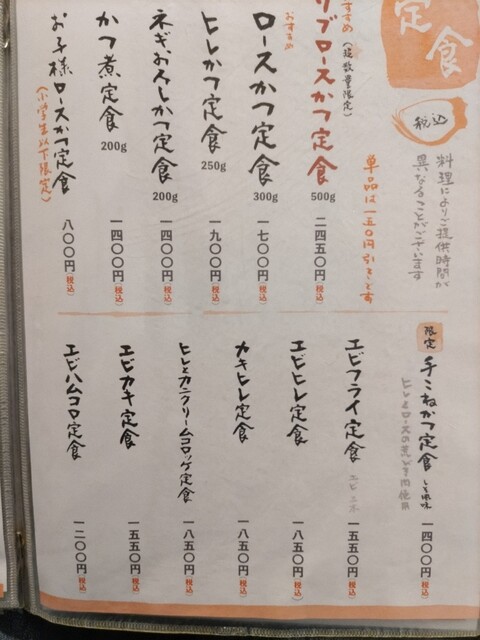 定食
税込
料理によりご提供時間が
異なることがございます
単品は一五〇円引きです
すすめ
リブロースかつ定食
(超数量限定)
500g
二四五〇円(税込)
おすすめ
ロースかつ定食
300g
一七〇〇円(税込)
ヒレかつ定食
250g
一九〇〇円(税込)
ネギおろしかつ定食
200g
一四〇〇円(税込)
かつ煮定食
200g
一四〇〇円(税込)
お子様ロースかつ定食
(小学生以下限定)
八〇〇円(税込)
限定
手こねかつ定食
しそ風味
ヒレとロースの
使用
一四〇〇円(税込)
エビフライ定食
エビ
一五五〇円(税込)
エビヒレ定食
一八五〇円(税込)
カキヒレ定食
一八五〇円(税込)
ヒレとカニクリームコロッケ定食
一八五〇円(税込)
エビカキ定食
一五五〇円(税込)
エビハムコロ定食
一二〇〇円(税込)